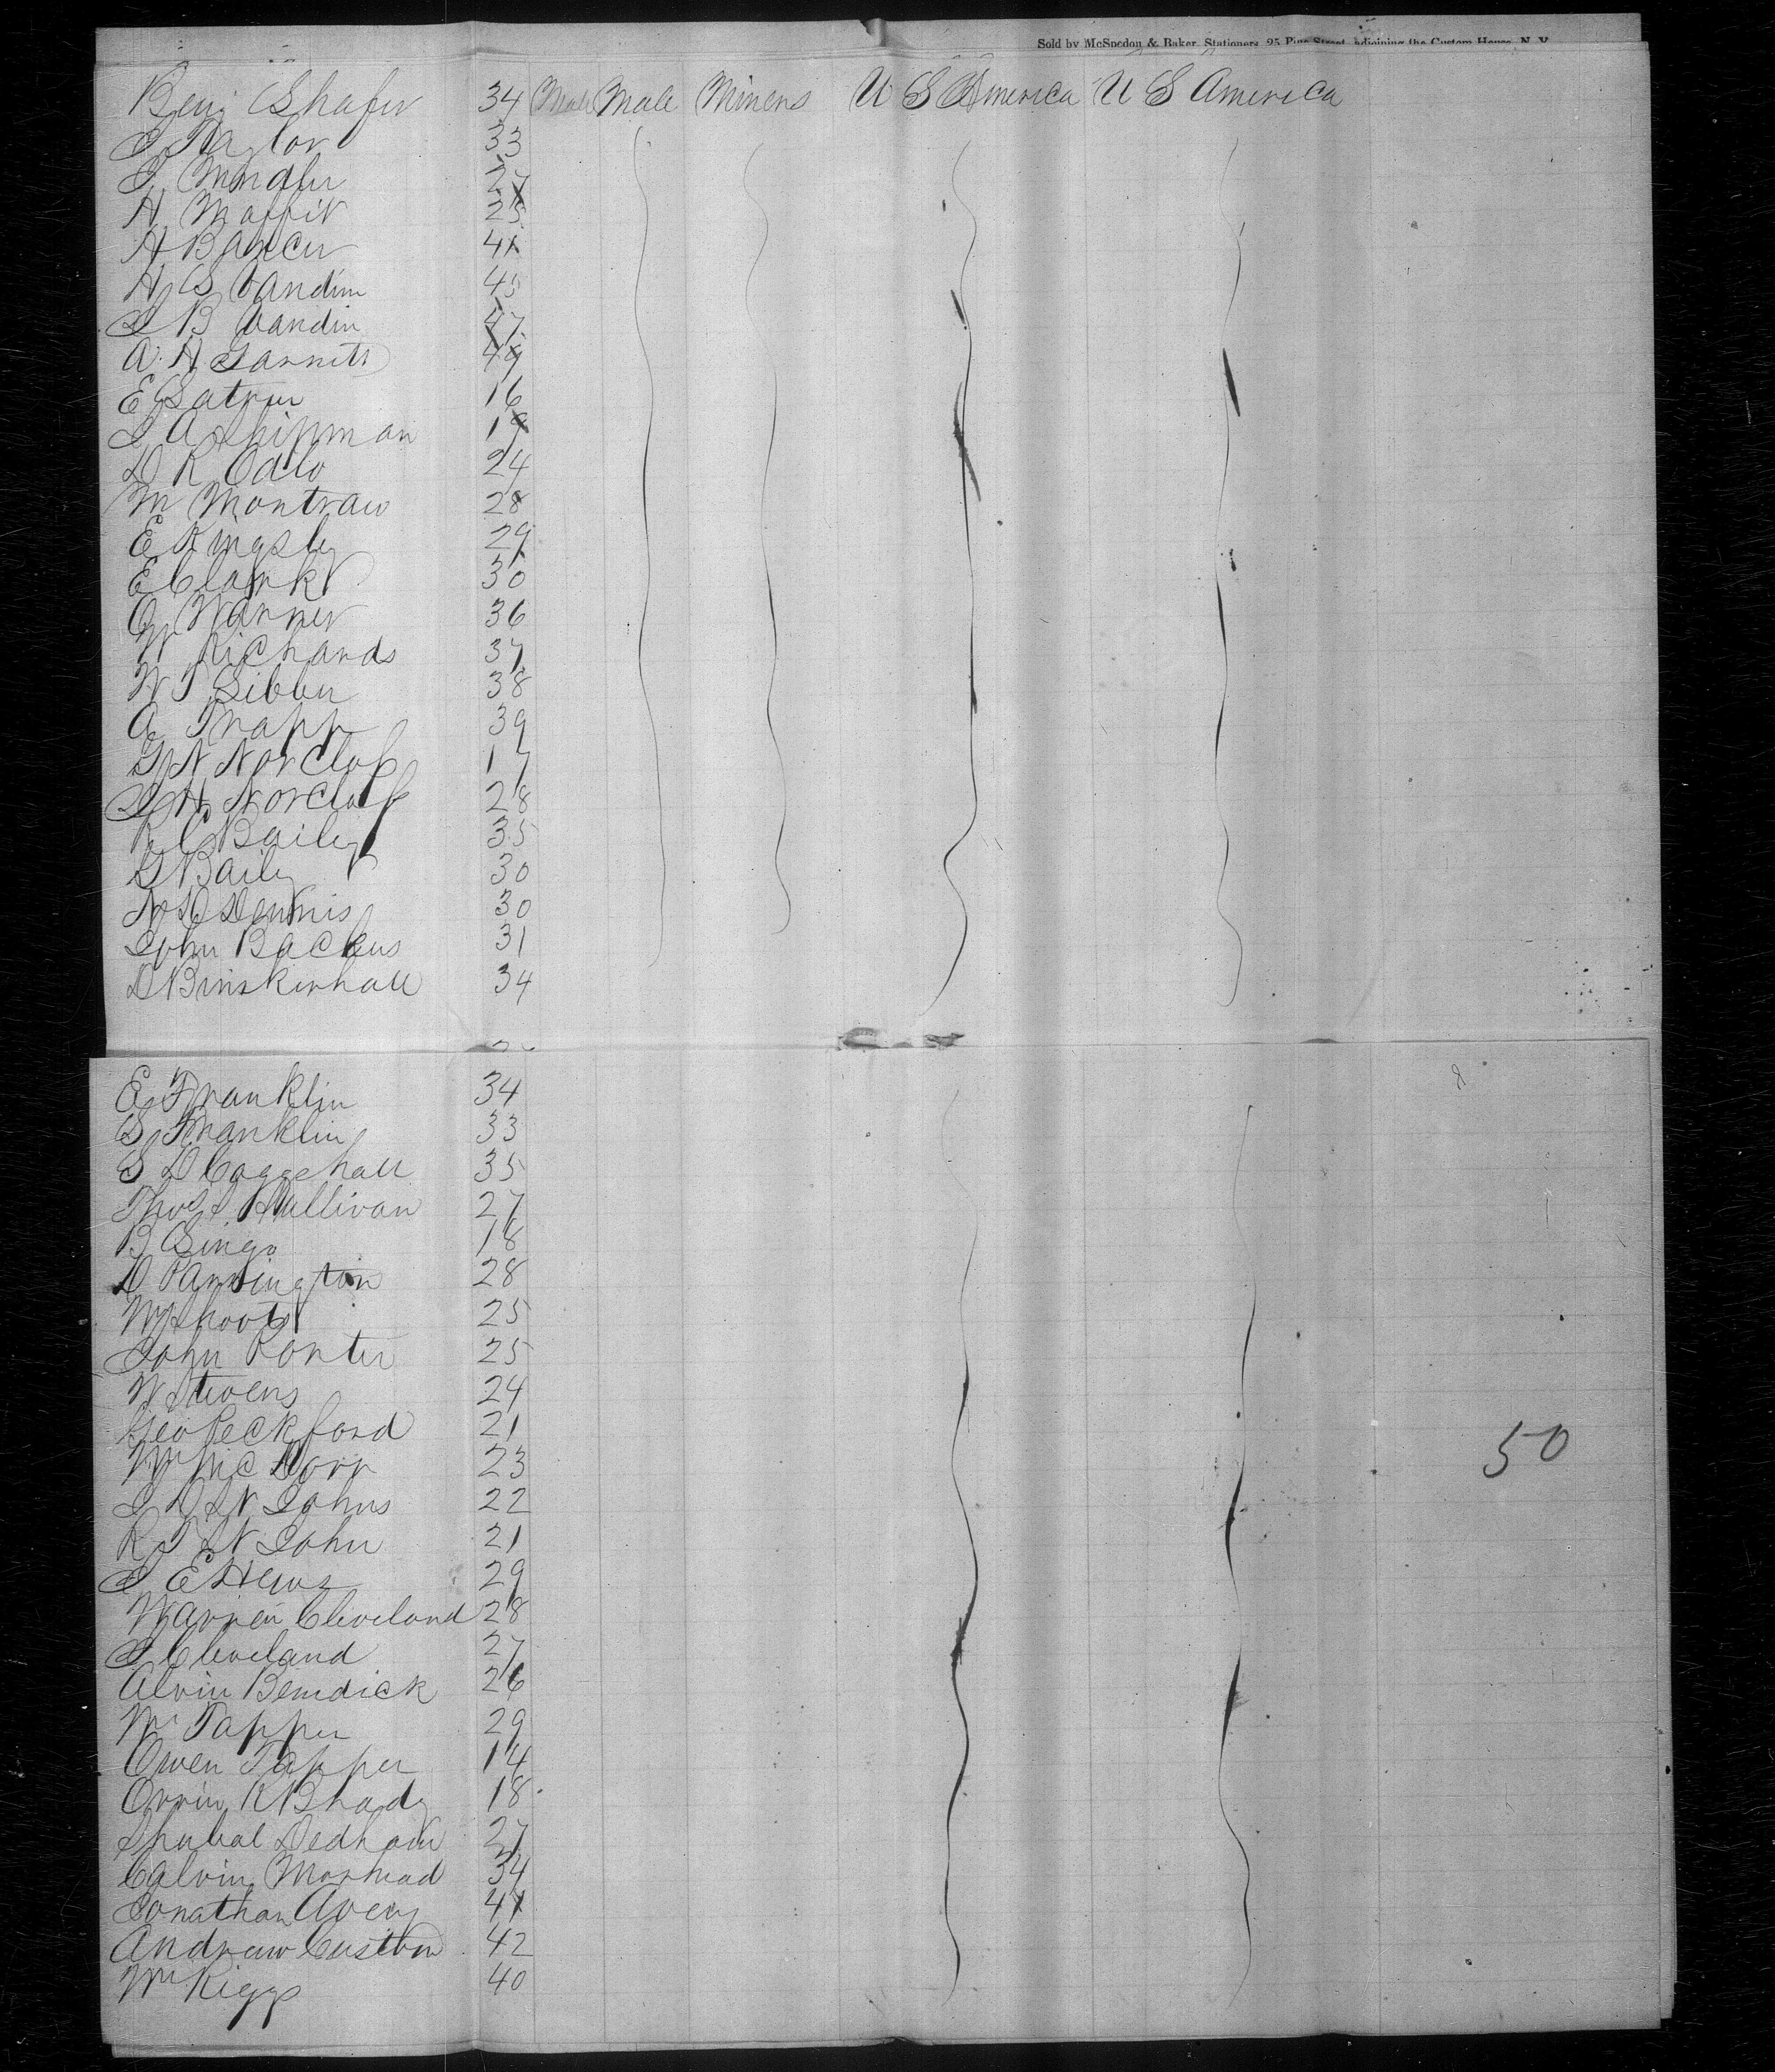 Sold by McSpedon & Baker, Stationers, 25 Pine Street, adjoining the Custom House, N. Y.
Benj Shafer 34 Male Male Miners U S America U S America
J Taylor 33
27
H Moffit 25
H Barcer 41
H S Vandim 45
J B Vandin 47
A. H Garnitt 49
E 16
J A Shipman 19
D R 24
M Montraw 28
E Kingsly 29
E Clark 30
O Warner 36
W Richards 37
W T Sibber 38
A Trapp 39
G N Norclof 17
J H Norclof 28
R C Baily 35
G Baily 30
N D Dennis 30
John Backus 31
D Brinskerhall 34
E Franklin 34
S Franklin 33
S D Coggehall 35
Thos S Sullivan 27
B Singo 18
D Pannington 28
Wm Shoots 25
John Porter 25
W Stevens 24
Geo Peckford 21
Wm Mc Dorr 23
J D St Johns 22
R T St John 21
J E Hews 29
Warren Cleveland 28
J Cleveland 27
Alvin Benidick 26
50
Wm Tapper 29
Owen Tapper 14
Orrin K Bhady 18
Shubal Dedham 27
Calvin Morhead 34
Jonathan Avery 41
Andraw Custom 42
Wm Riggs 40